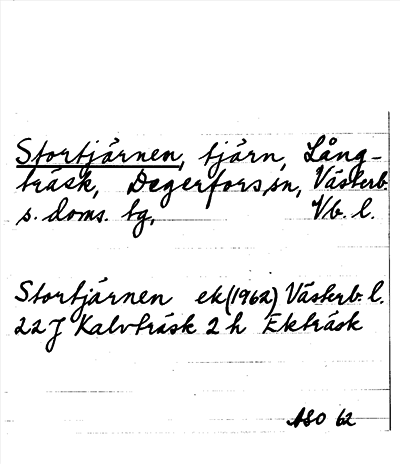 Stortjärnen, tjärn, Lång-
träsk, Degerfors sn, Västerb.
s. doms. tg, Vb. l.
Stortjärnen ek (1962) Västerb. l.
22 J Kalvträsk 2 h Ekträsk
ASO 62